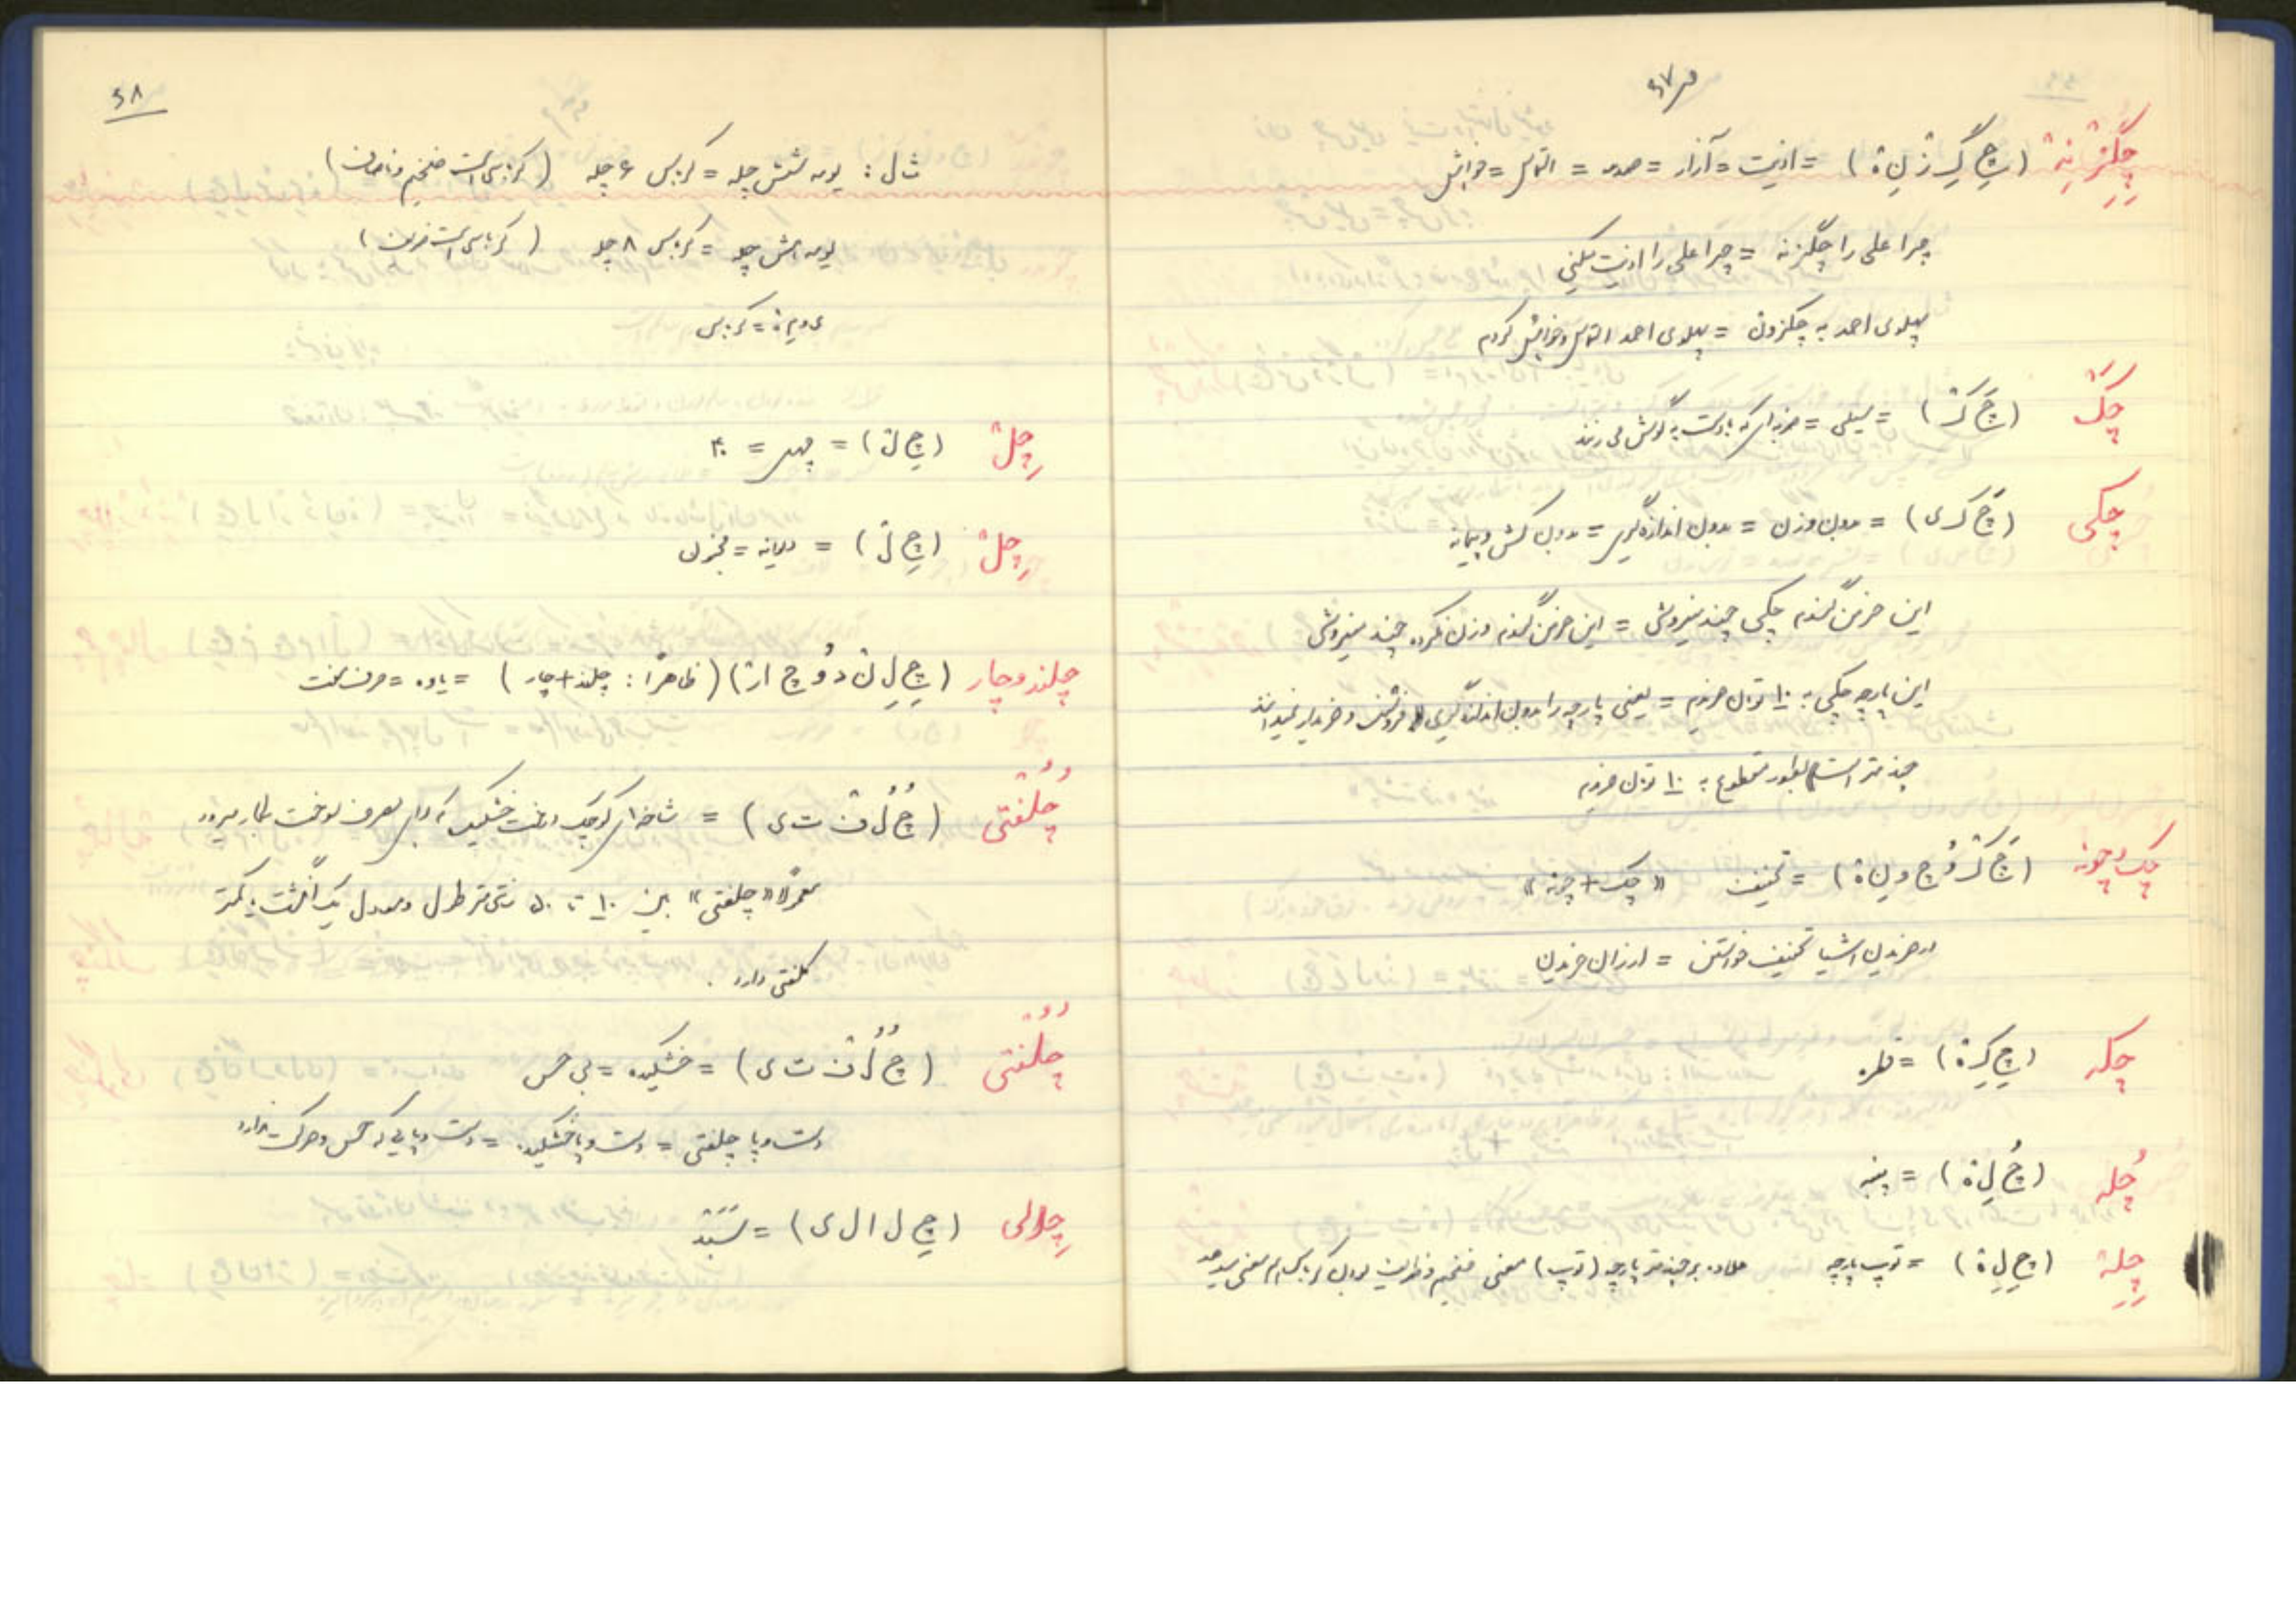 ۶۷
چِگِزنِه (چِ گِ زْ نِ ه) = اذیت = آزار = صدمه = التماس = خواهش
چرا علی را چگزنه = چرا علی را اذیت میکنی
پهلوی احمد به چگزون = پهلوی احمد التماس و خواهش کردم
چَکْ (چَ کْ) = سیلی = ضربه‌ای که با دست به گوش می زنند
چکی (چَ ک ی) = بدون وزن = بدون اندازه گیری = بدون کش و پیمانه
این خرمن گندم چکی چند میفروشی = این خرمن گندم وزن نکرده چند میفروشی
این پارچه چکی به ۱۰ تومان خریدم = یعنی پارچه را بدون اندازه گیری فروشنده و خریدار نمیدانند
چند متر است بطور مقطوع به ۱۰ تومان خریدم
چک و چونه (چَ کْ وُ چ و نِ ه) = تخفیف «چک + چونه»
در خریدن اشیا تخفیف خواستن = ارزان خریدن
چکه (چِ کِ ه) = قطره
چُله (چُ لِ ه) = پنبه
چِلِه (چِ لِ ه) = توپ پارچه علاوه بر چند متر پارچه (توپ) معنی ضخیم و ظرافت بودن کرباس هم معنی میدهد
۶۸
مثال : شش چله = کرباس ۶ چله (کرباسی است ضخیم و)
هش چله = کرباس ۸ چله (کرباسی است)
= کرباس
چِلْ (چِ لْ) = چهل = ۴۰
چِلْ (چِ لْ) = دیوانه = مجنون
چلند و چار (چِ لِ نْ د وُ چ ا رْ) (ظاهراً : چلند + چار) = یاوه = حرف مفت
چُلُفتی (چُ لُ فْ ت ی) = شاخه‌ای کوچک درخت خشکیده که برای مصرف سوخت بکار میرود
معمولاً «چلفتی» بین ۱۰ تا ۵۰ سانتی متر طول و معادل یک انگشت یا کمتر
کلفتی دارد .
چُلُفتی (چُ لُ فْ ت ی) = خشکیده = بی حس
دست و پا چلفتی = دست و پا خشکیده = دست و پایی که حس و حرکت ندارد
چِلالی (چِ ل ا ل ی) = سَبَدْ